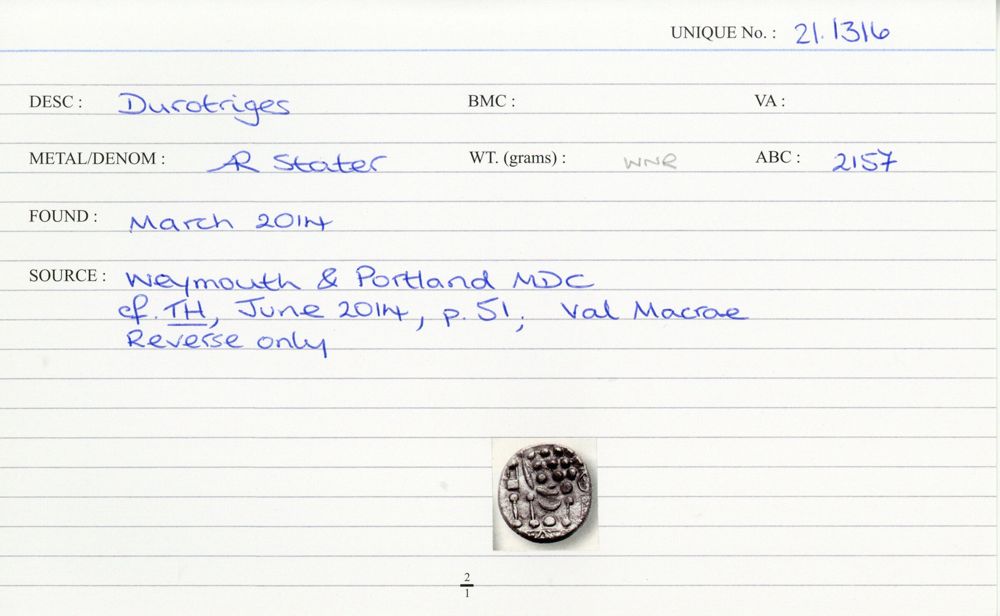 UNIQUE No. : 21.1316
DESC : Durotriges BMC : VA :
METAL/DENOM : AR Stater WT. (grams) : WNR ABC : 2157
FOUND : March 2014
SOURCE : Weymouth & Portland MDC
cf. TH, June 2014, p. 51; Val Macrae
Reverse only
2
1